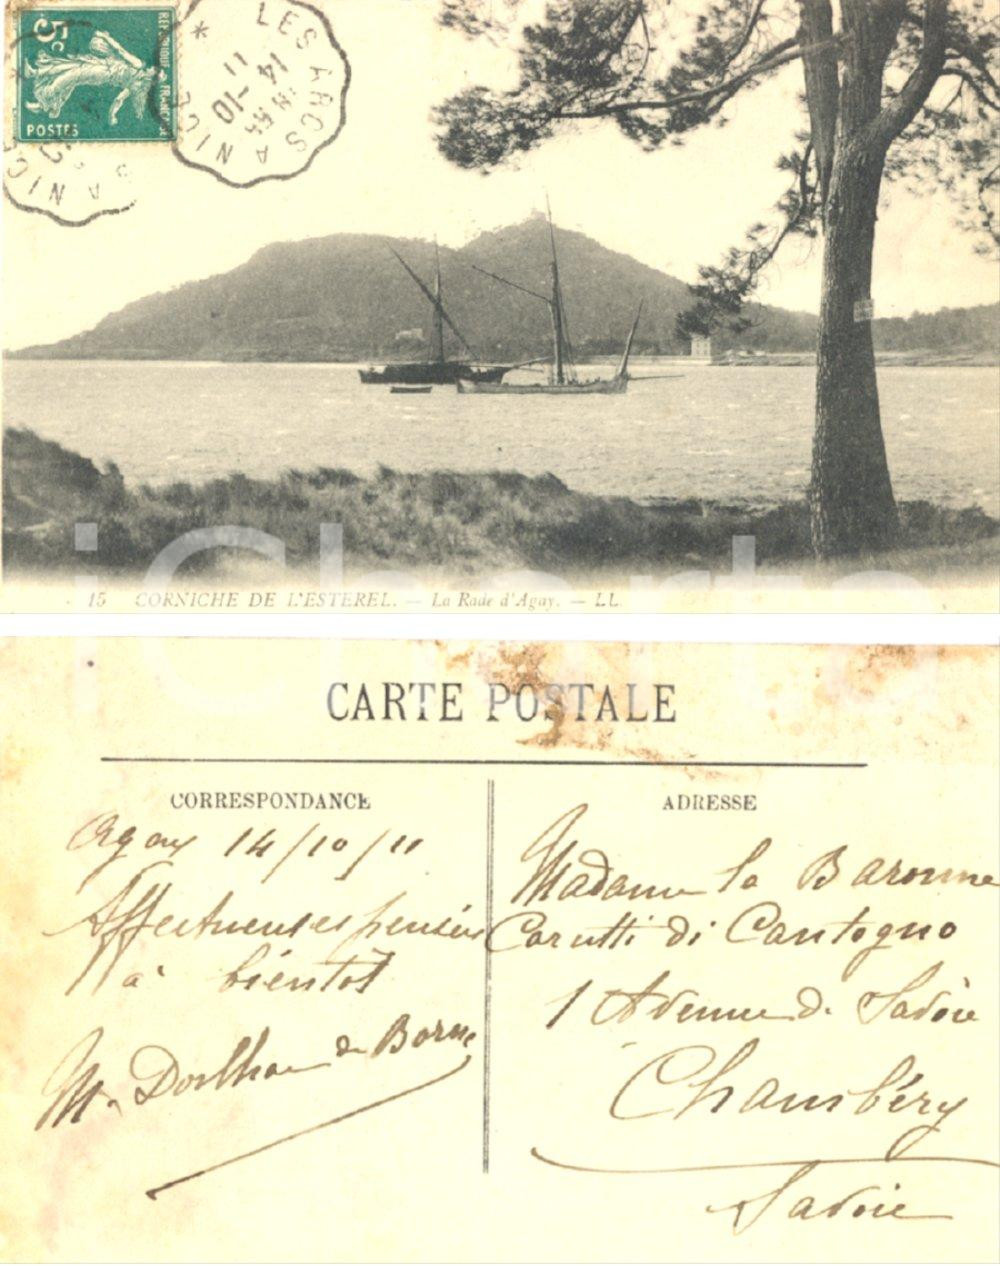 5c
POSTES
REPUBLIQUE FRANÇAISE
LES ARCS A NICE
14
11-10
*
15 CORNICHE DE L'ESTEREL. — La Rade d'Agay. — LL.
iCharta
CARTE POSTALE
CORRESPONDANCE
Agay 14/10/11
Affectueuses pensées
à bientôt
M. Dorlhac de Borne
ADRESSE
Madame la Baronne
Carutti di Cantogno
1 Avenue de Savoie
Chambéry
Savoie